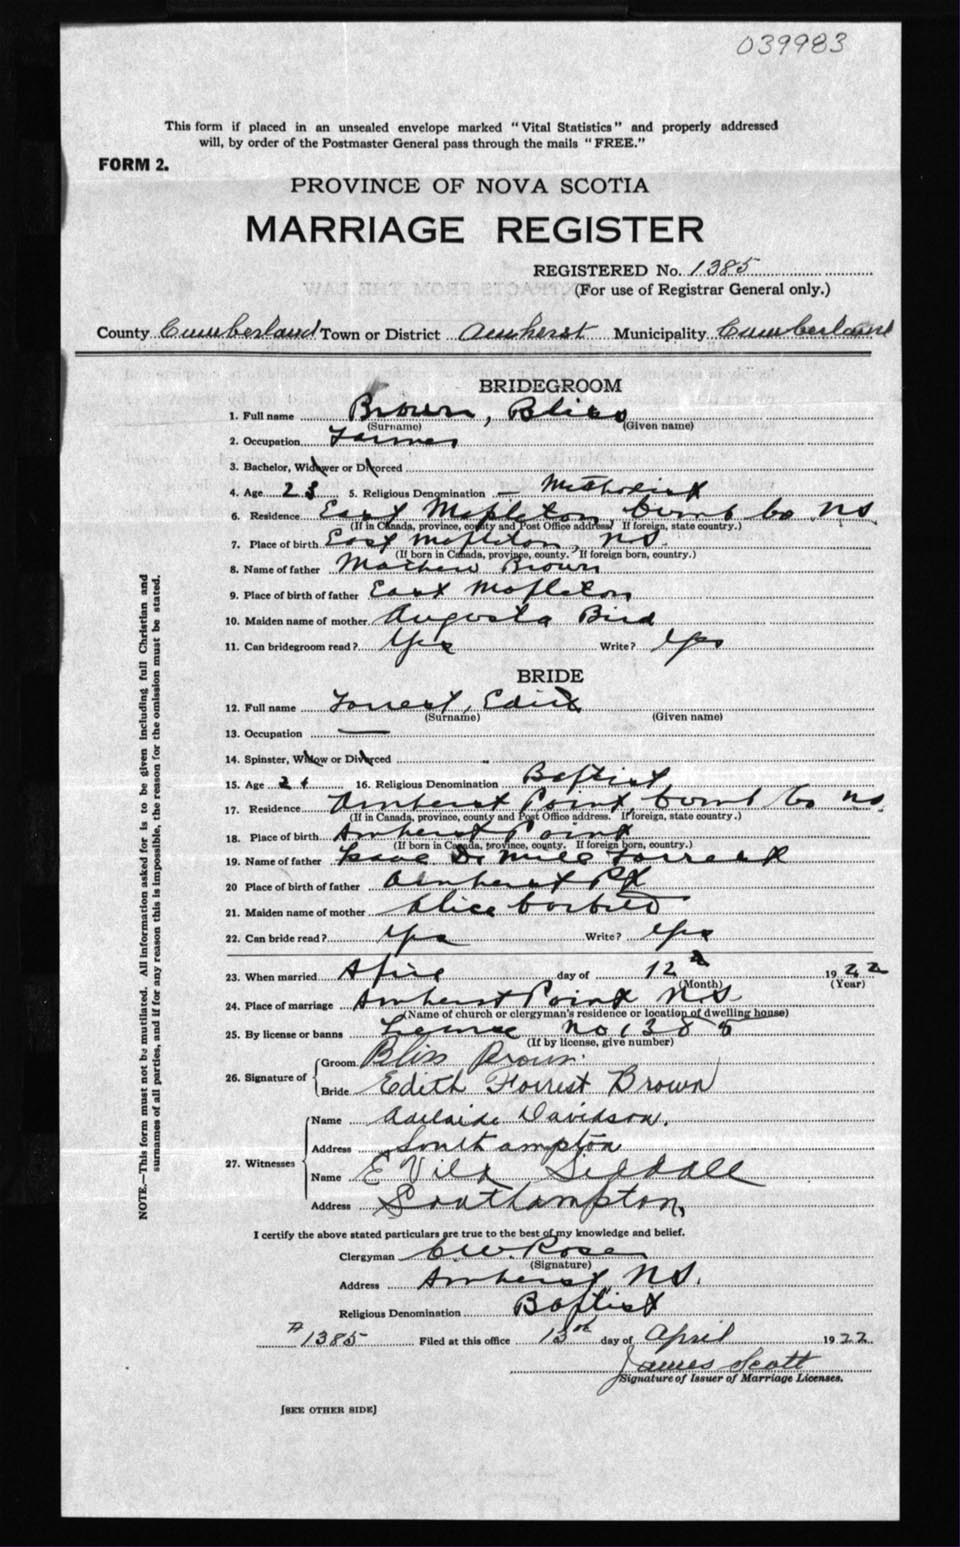 039983
This form if placed in an unsealed envelope marked "Vital Statistics" and properly addressed
will, by order of the Postmaster General pass through the mails "FREE."
FORM 2.
PROVINCE OF NOVA SCOTIA
MARRIAGE REGISTER
REGISTERED No. 1385
(For use of Registrar General only.)
County Cumberland Town or District Amherst Municipality Cumberland
BRIDEGROOM
1. Full name Brown, Bliss
(Surname) (Given name)
2. Occupation Farmer
3. Bachelor, Widower or Divorced
4. Age 23 5. Religious Denomination Methodist
6. Residence East Mapleton, Cumb Co NS
(If in Canada, province, county and Post Office address. If foreign, state country.)
7. Place of birth East Mapleton, NS
(If born in Canada, province, county. If foreign born, country.)
8. Name of father Mathew Brown
9. Place of birth of father East Mapleton
10. Maiden name of mother Augusta Bird
11. Can bridegroom read? Yes Write? Yes
BRIDE
12. Full name Forrest, Edith
(Surname) (Given name)
13. Occupation —
14. Spinster, Widow or Divorced
15. Age 24 16. Religious Denomination Baptist
17. Residence Amherst Point, Cumb Co NS
(If in Canada, province, county and Post Office address. If foreign, state country.)
18. Place of birth Amherst Point
(If born in Canada, province, county. If foreign born, country.)
19. Name of father Isaac DeMille Forrest
20 Place of birth of father Amherst Pt
21. Maiden name of mother Alice
22. Can bride read? Yes Write? Yes
23. When married April day of 12 1922
(Month) (Year)
24. Place of marriage Amherst Point NS
(Name of church or clergyman's residence or location of dwelling house)
25. By license or banns License no 1385
(If by license, give number)
26. Signature of Groom Bliss Brown.
Bride Edith Forrest Brown
27. Witnesses Name Adelaide Davidson.
Address Southampton
Name E Vila
Address Southampton,
I certify the above stated particulars are true to the best of my knowledge and belief.
Clergyman C W. Rose
(Signature)
Address Amherst, NS.
Religious Denomination Baptist
# 1385 Filed at this office 13th day of April 1922
James Scott
Signature of Issuer of Marriage Licenses.
[SEE OTHER SIDE]
NOTE.—This form must not be mutilated. All information asked for is to be given including full Christian and
surnames of all parties, and if for any reason this is impossible, the reason for the omission must be stated.